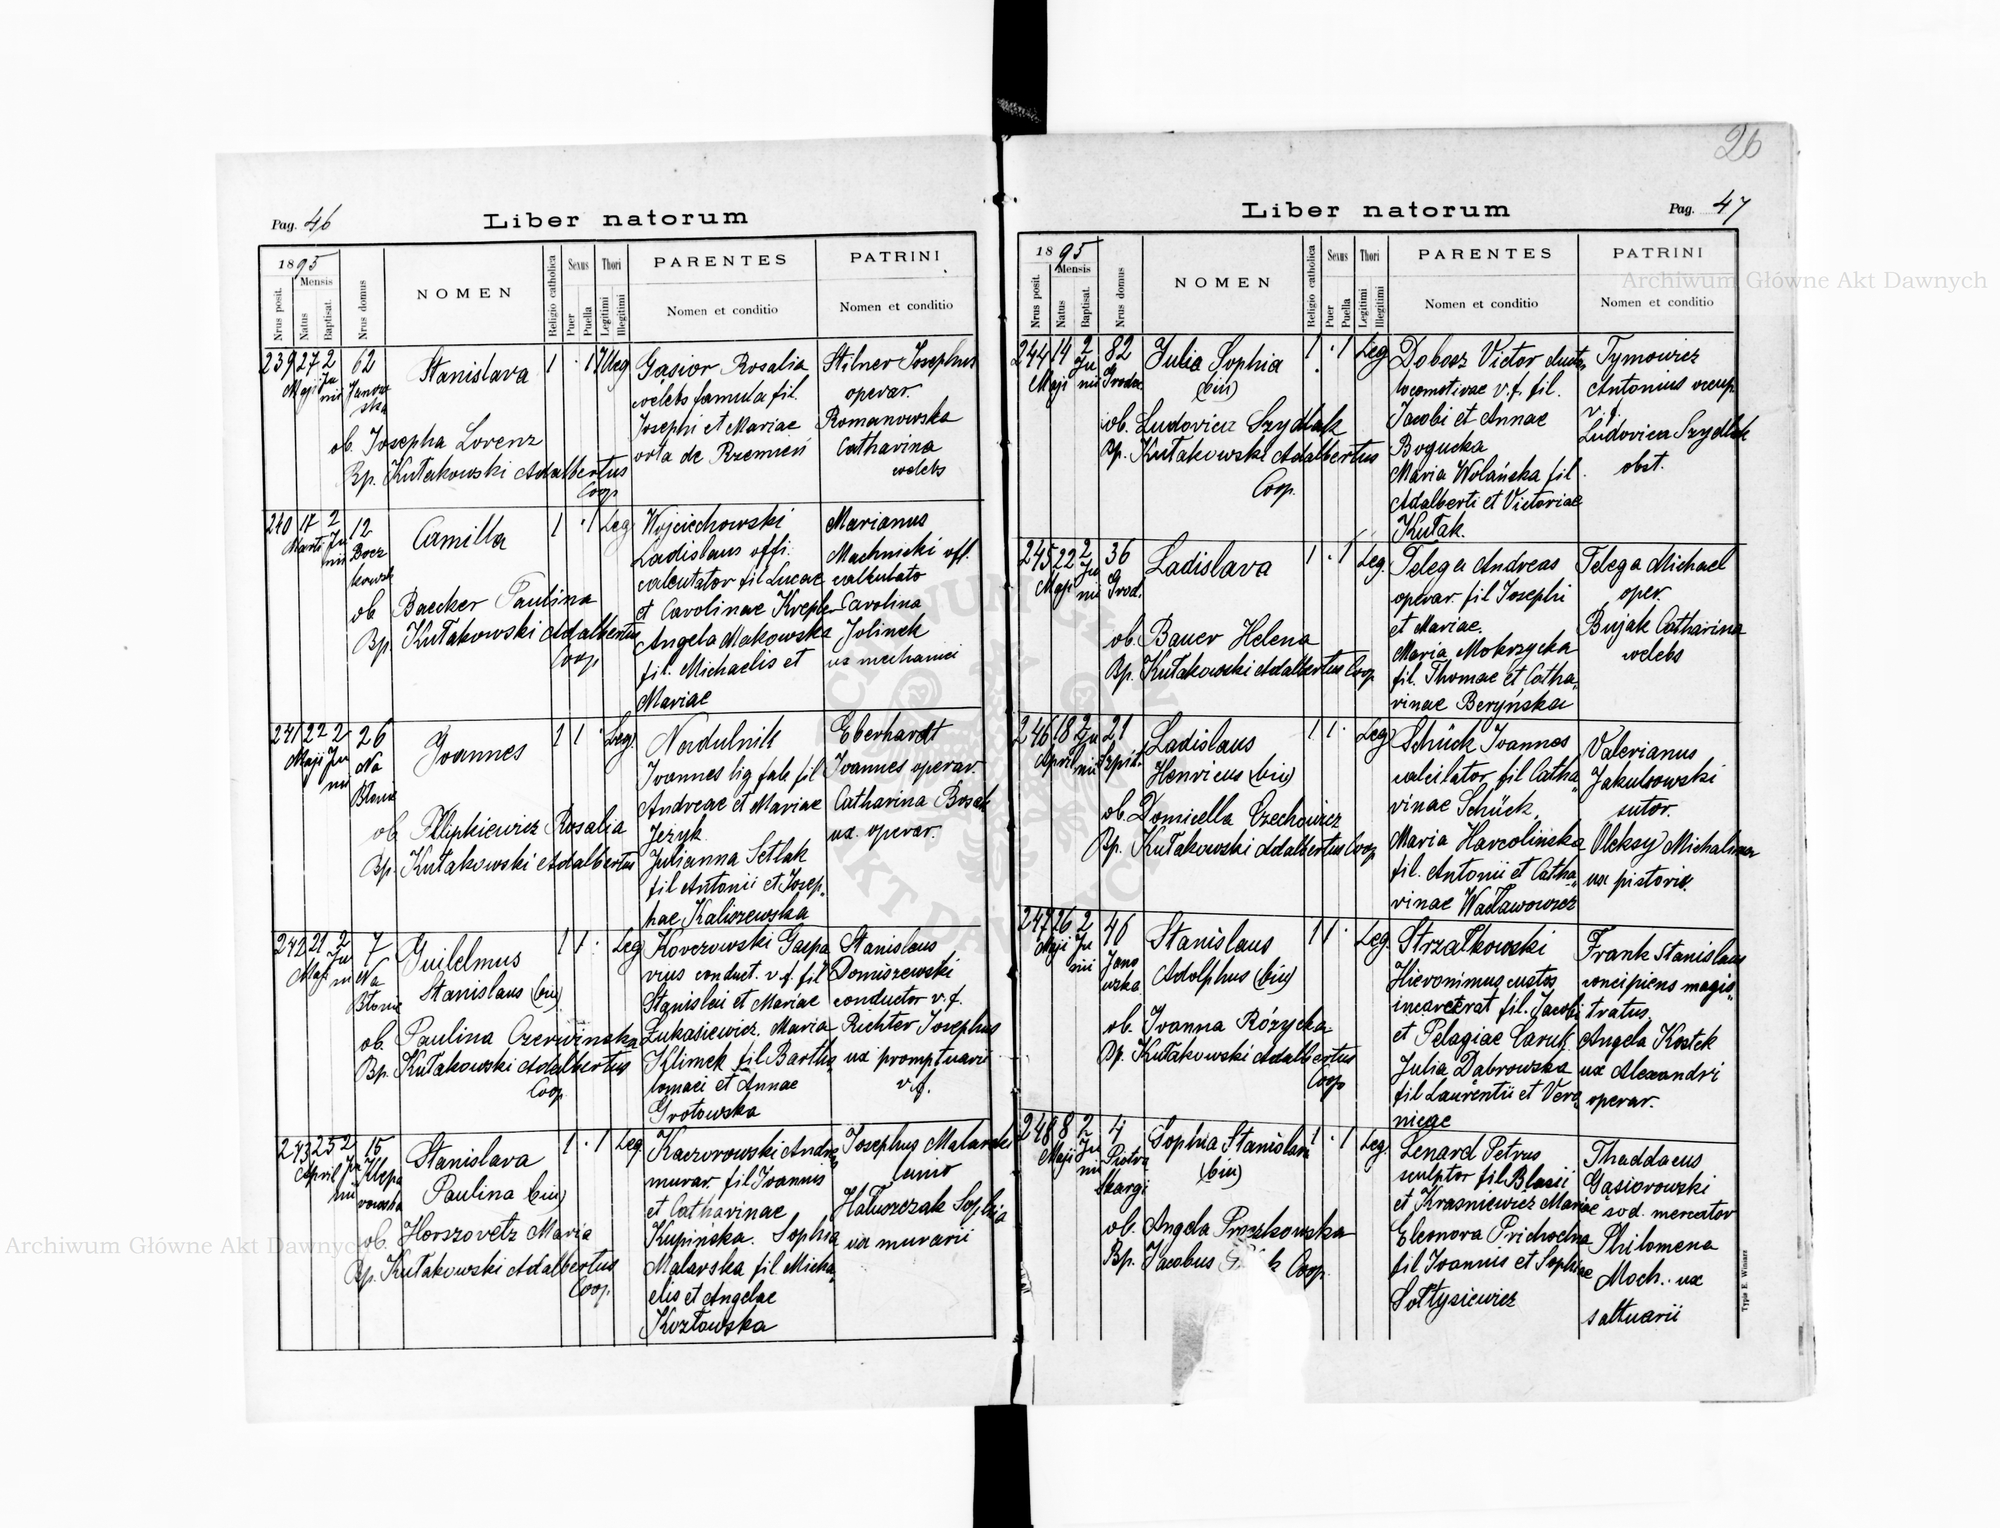 26
Pag. 46
Liber natorum
1895
Mensis
Nrus posit.
Natus
Baptisat.
Nrus domus
NOMEN
Religio catholica
Sexus
Puer
Puella
Thori
Legitimi
Illegitimi
PARENTES
Nomen et conditio
PATRINI
Nomen et conditio
239 27 2 62 Stanislava 1 · 1 Illeg
Maji Junii Janowska
ob. Josepha Lorenz
Bp. Kułakowski Adalbertus
Coop
Gąsior Rosalia
celebs famula fil.
Josephi et Mariae
orta de Rzemień
Stilner Josephus
operar.
Romanowska
Catharina
celebs
240 17 2 12 Camilla 1 · 1 Leg
Marti Junii
ob Baecker Paulina
Bp Kułakowski Adalbertus
Coop
Wojciechowski
Ladislaus offi.
calculator fil Lucae
et Carolinae Krepler
Angela Makowska
fil. Michaelis et
Mariae
Marianus
Machnicki off.
calkulato
Carolina
Jolinek
ux mechanici
241 22 2 26 Joannes 1 1 · Leg.
Maji Junii Na
Błonie
ob. Filipkiewicz Rosalia
Bp. Kułakowski Adalbertus
Joannes lig fab fil
Andreae et Mariae
Jezyk
Julianna Setlak
fil Antonii et Josep„
hae Kaliszewska
Eberhardt
Joannes operar.
Catharina Bosak
ux. operar.
242 21 2 7 Guilelmus 1 1 · Leg
Maji Na
Błonie
Stanislaus (bin)
ob. Paulina Czerwińska
Bp. Kułakowski Adalbertus
Coop
Koverowski Gaspa
rius conduct. v.f. fil
Stanislai et Mariae
Łukasiewicz. Maria
Klimek fil Bartho
lomaei et Annae
Grotowska
Stanislaus
Domiszewski
conductor v.f.
Richter Josephus
ux promptuarii
v.f.
243 25 2 15 Stanislava 1 · 1 Leg
April Junii
Paulina (bin)
ob. Horszovetz Maria
Bp. Kułakowski Adalbertus
Coop.
Kaczorowski Andre
murar. fil Joannis
et Catharinae
Kupińska. Sophia
Malarska fil Micha„
elis et Angelae
Kozłowska
Josephus Malarski
lanio
Hałuszczak Sophia
ux murarii
Liber natorum
Pag. 47
1895
Mensis
Nrus posit.
Natus
Baptisat.
Nrus domus
NOMEN
Religio catholica
Sexus
Puer
Puella
Thori
Legitimi
Illegitimi
PARENTES
Nomen et conditio
PATRINI
Nomen et conditio
244 14 2 82 Julia Sophia 1 · 1 Leg
Maji Junii
(bin)
ob. Ludovica Szydłak
Bp. Kułakowski Adalbertus
Coop.
Dobosz Victor ductor
locomotivae v.f. fil.
Jacobi et Annae
Bogucka
Maria Wolańska fil
Adalberti et Victoriae
Kułak.
Tymowicz
Antonius
v.f.
Ludovica Szydłak
obst.
245 22 2 36 Ladislava 1 · 1 Leg.
Maji Junii Grod.
ob. Bauer Helena
Bp. Kułakowski Adalbertus Coop
Telega Andreas
operar. fil Josephi
et Mariae.
Maria Mokrzycka
fil. Thomae et Catha„
rinae Beryńska
Telega Michael
oper.
Bujak Catharina
celebs
246 18 2 21 Ladislaus 1 1 · Leg
April Junii Szpit.
Henricus (bin)
ob. Domicella Czechowicz
Bp. Kułakowski Adalbertus Coop
Schück Joannes
calculator fil Catha„
rinae Schück.
Maria Harcolińska
fil. Antonii et Catha„
rinae Wacławowicz
Valerianus
Jakubowski
sutor.
Oleksy Michalina
ux pistoris.
247 26 2 46 Stanislaus 1 1 · Leg.
Maji Junii
Adolphus (bin)
ob. Joanna Różycka
Bp. Kułakowski Adalbertus
Coop
Strzałkowski
Hieronimus custos
incarcerat fil. Jacobi
et Pelagiae Caruk
Julia Dąbrowska
fil Laurentii et Vero„
nicae
Frank Stanislaus
concipiens magis„
tratus.
Angela Kostek
ux Alexandri
operar.
248 8 2 4 Sophia Stanislava 1 · 1 Leg.
Maji Junii Piotra
Skargi
(bin)
ob. Angela Proszkowska
Bp. Jacobus Coop.
Lenard Petrus
sculptor fil Blasii
et Krasniewicz Mariae
Eleonora Prichodna
fil Joannis et Sophiae
Sołtysiewicz
Thaddaeus
Gąsiorowski
sod. mercator
Philomena
Moch. ux
saltuarii
Typis E. Winiarz
Archiwum Główne Akt Dawnych
Archiwum Główne Akt Dawnych